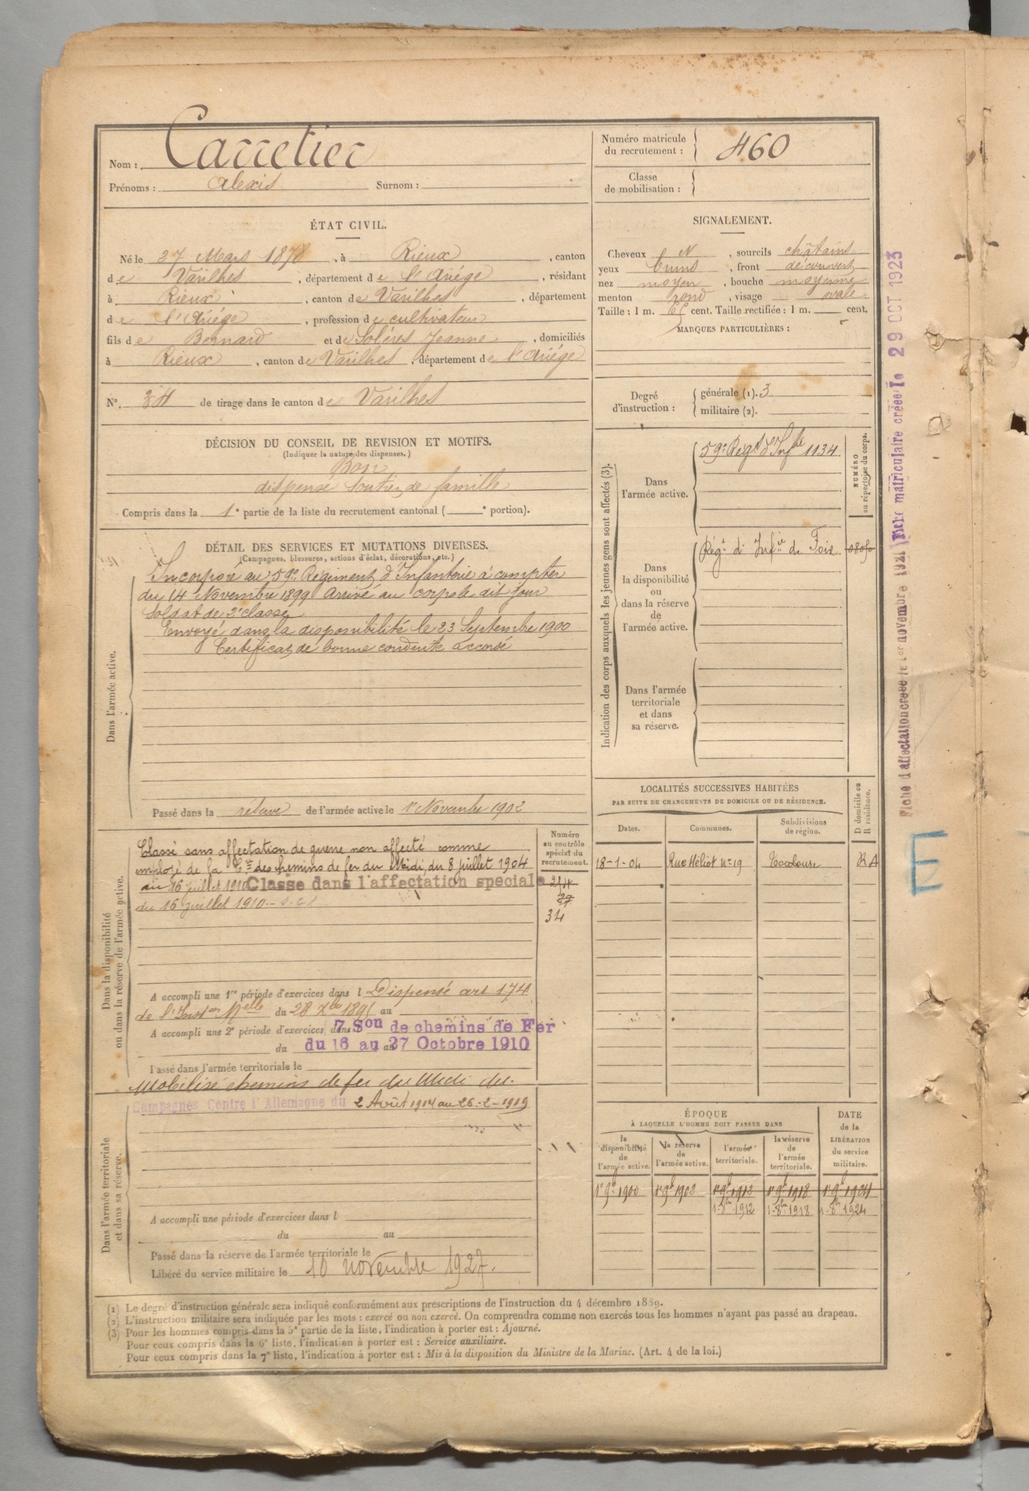 Nom : Carretier
Prénoms : Alexis Surnom :
Numéro matricule du recrutement : 460
Classe de mobilisation :
ÉTAT CIVIL.
Né le 27 Mars 1878, à Rieux, canton
de Varilhes, département de l'Ariége, résidant
à Rieux, canton de Varilhes, département
de l'Ariége, profession de cultivateur
fils de Bernard et de Soléres Jeanne, domiciliés
à Rieux, canton de Varilhes, département de l'Ariége
N°. 34 de tirage dans le canton de Varilhes
SIGNALEMENT.
Cheveux N, sourcils châtains
yeux bruns, front découvert
nez moyen, bouche moyenne
menton rond, visage ovale
Taille : 1 m. cent. Taille rectifiée : 1 m. cent.
MARQUES PARTICULIÈRES :
Degré d'instruction : générale (1). 3
militaire (2).
DÉCISION DU CONSEIL DE REVISION ET MOTIFS.
(Indiquer la nature des dispenses.)
Bon
dispensé soutien de famille
Compris dans la 1e partie de la liste du recrutement cantonal ( e portion).
DÉTAIL DES SERVICES ET MUTATIONS DIVERSES.
(Campagnes, blessures, actions d'éclat, décorations, etc.)
Dans l'armée active.
Incorporé au 59e Régiment d'Infanterie à compter
du 14 Novembre 1899 Arrivé au corps le dit jour
Soldat de 2e classe
Envoyé dans la disponibilité le 23 Septembre 1900
Certificat de bonne conduite accordé
Passé dans la réserve de l'armée active le 1er Novembre 1902
Indication des corps auxquels les jeunes gens sont affectés (3).
NUMÉRO au répertoire du corps.
Dans l'armée active.
59e Régt d'Infie 1134
Dans la disponibilité ou dans la réserve de l'armée active.
Régt d'Infie de Foix
Dans l'armée territoriale et dans sa réserve.
LOCALITÉS SUCCESSIVES HABITÉES
PAR SUITE DE CHANGEMENTS DE DOMICILE OU DE RÉSIDENCE.
Dates. Communes. Subdivisions de région. D domicile ou R résidence.
18-1-04 Rue Héliot n° 19 Toulouse R
Dans la disponibilité ou dans la réserve de l'armée active.
Numéro au contrôle spécial du recrutement.
Classé sans affectation de guerre non affecté comme
employé de la Cie des chemins de fer du Midi, du 8 juillet 1904
au 16 juillet 1910 Classé dans l'affectation spéciale
du 16 juillet 1910
34
A accompli une 1re période d'exercices dans l Dispensé art 174
de l'Inston Melle du 28 Xbre 1895 au
A accompli une 2e période d'exercices dans 7 Son de chemins de Fer
du 16 au 27 Octobre 1910
Passé dans l'armée territoriale le
Mobilisé chemins de fer du Midi du
Campagnes Contre l'Allemagne du 2 Août 1914 au 26-2-1919
Dans l'armée territoriale et dans sa réserve.
A accompli une période d'exercices dans l
du au
Passé dans la réserve de l'armée territoriale le
Libéré du service militaire le 10 novembre 1927.
ÉPOQUE
À LAQUELLE L'HOMME DOIT PASSER DANS
DATE de la LIBÉRATION du service militaire.
la disponibilité de l'armée active. la réserve de l'armée active. l'armée territoriale. la réserve de l'armée territoriale.
1r 9bre 1900 1r 9bre 1902 1r 9bre 1912 1r 9bre 1918 1r 9bre 1924
1-8bre 1912 1-8bre 1918 1-8bre 1924
(1) Le degré d'instruction générale sera indiqué conformément aux prescriptions de l'instruction du 4 décembre 1889.
(2) L'instruction militaire sera indiquée par les mots : exercé ou non exercé. On comprendra comme non exercés tous les hommes n'ayant pas passé au drapeau.
(3) Pour les hommes compris dans la 5e partie de la liste, l'indication à porter est : Ajourné.
Pour ceux compris dans la 6e liste, l'indication à porter est : Service auxiliaire.
Pour ceux compris dans la 7e liste, l'indication à porter est : Mis à la disposition du Ministre de la Marine. (Art. 4 de la loi.)
Fiche d'affectation créée le 1er novembre 1921 Fiche matriculaire créée le 29 OCT 1923
E